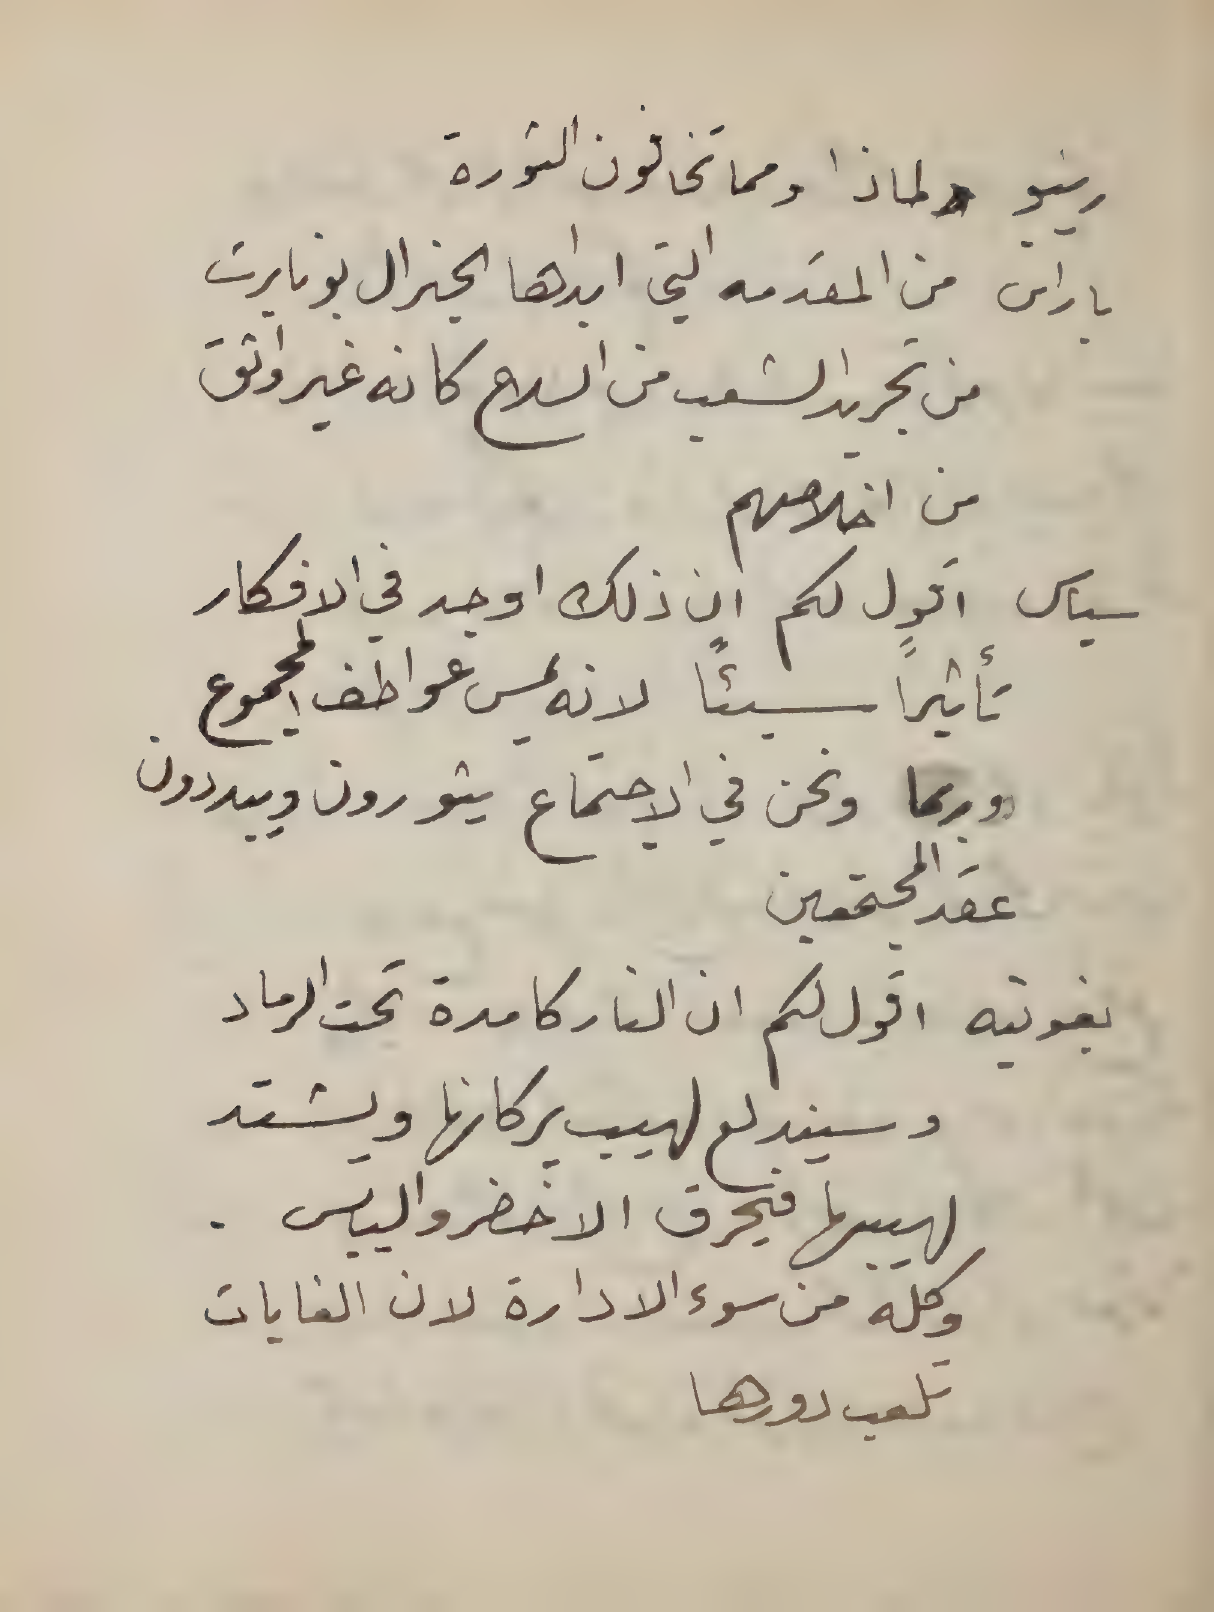 رينيو لماذا ومما تخافون الثورة
باراس من المقدمه التي ابداها الجنرال بونابرت
من تجريد الشعب من السلاح كانه غير واثق
من اخلاصهم
سياس اقول لكم ان ذلك اوجد في الافكار
تأثيراً سيئًا لانه لمس عواطف المجموع
وربما ونحن في الاجتماع يثورون ويبددون
عقد المجتمعين
اقول لكم ان النار كامدة تحت الرماد
وسيندلع لهيب بركانها ويشتد
لهيبها فيحرق الاخضر واليابس .
وكله من سوء الادارة لان الغايات
تلعب دورها